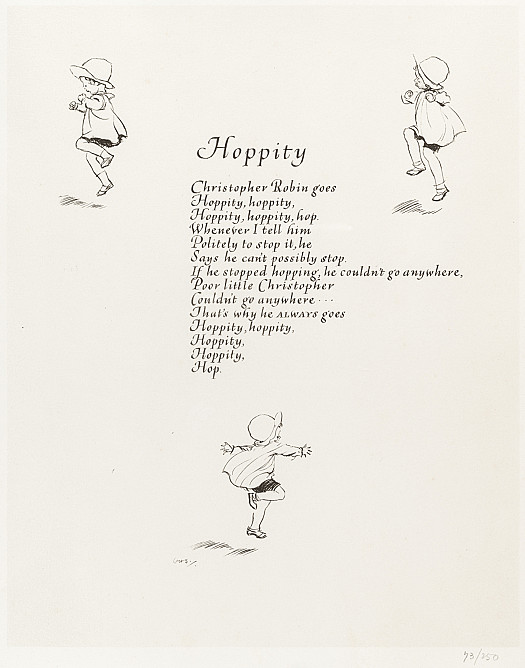 Hoppity
Christopher Robin goes
Hoppity, hoppity,
Hoppity, hoppity, hop.
Whenever I tell him
Politely to stop it, he
Says he can't possibly stop.
If he stopped hopping, he couldn't go anywhere,
Poor little Christopher
Couldn't go anywhere ...
That's why he ALWAYS goes
Hoppity, hoppity,
Hoppity,
Hoppity,
Hop.
93/250